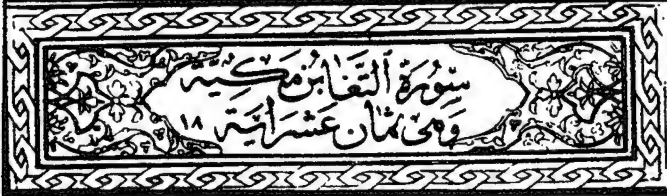 سُورَةُ ٱلتَّغَابُنِ مَكِّيَّة
وَهِىَ ثَمَانَ عَشَرَ آيَة ١٨